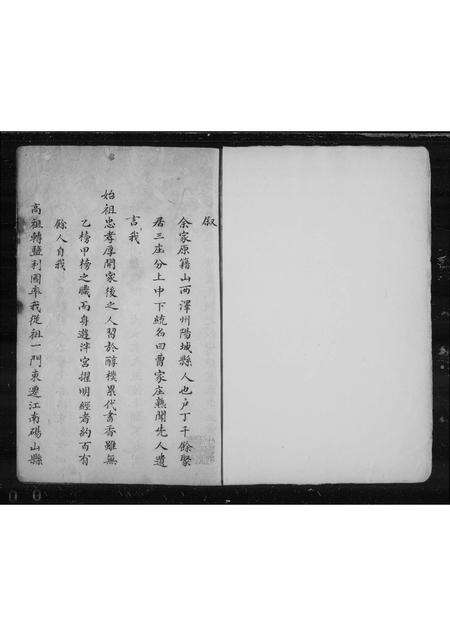 叙
余家原籍山西澤州陽城縣人也户丁千餘聚
居三庄分上中下統名曰曹家庄熟聞先人遺
言我
始祖忠孝厚開家後之人習於醇樸累代書香雖無
乙榜甲榜之職而身遊泮宮擢明經者約百有
餘人自我
高祖轉鹽利國率我從祖一門東遷江南碭山縣